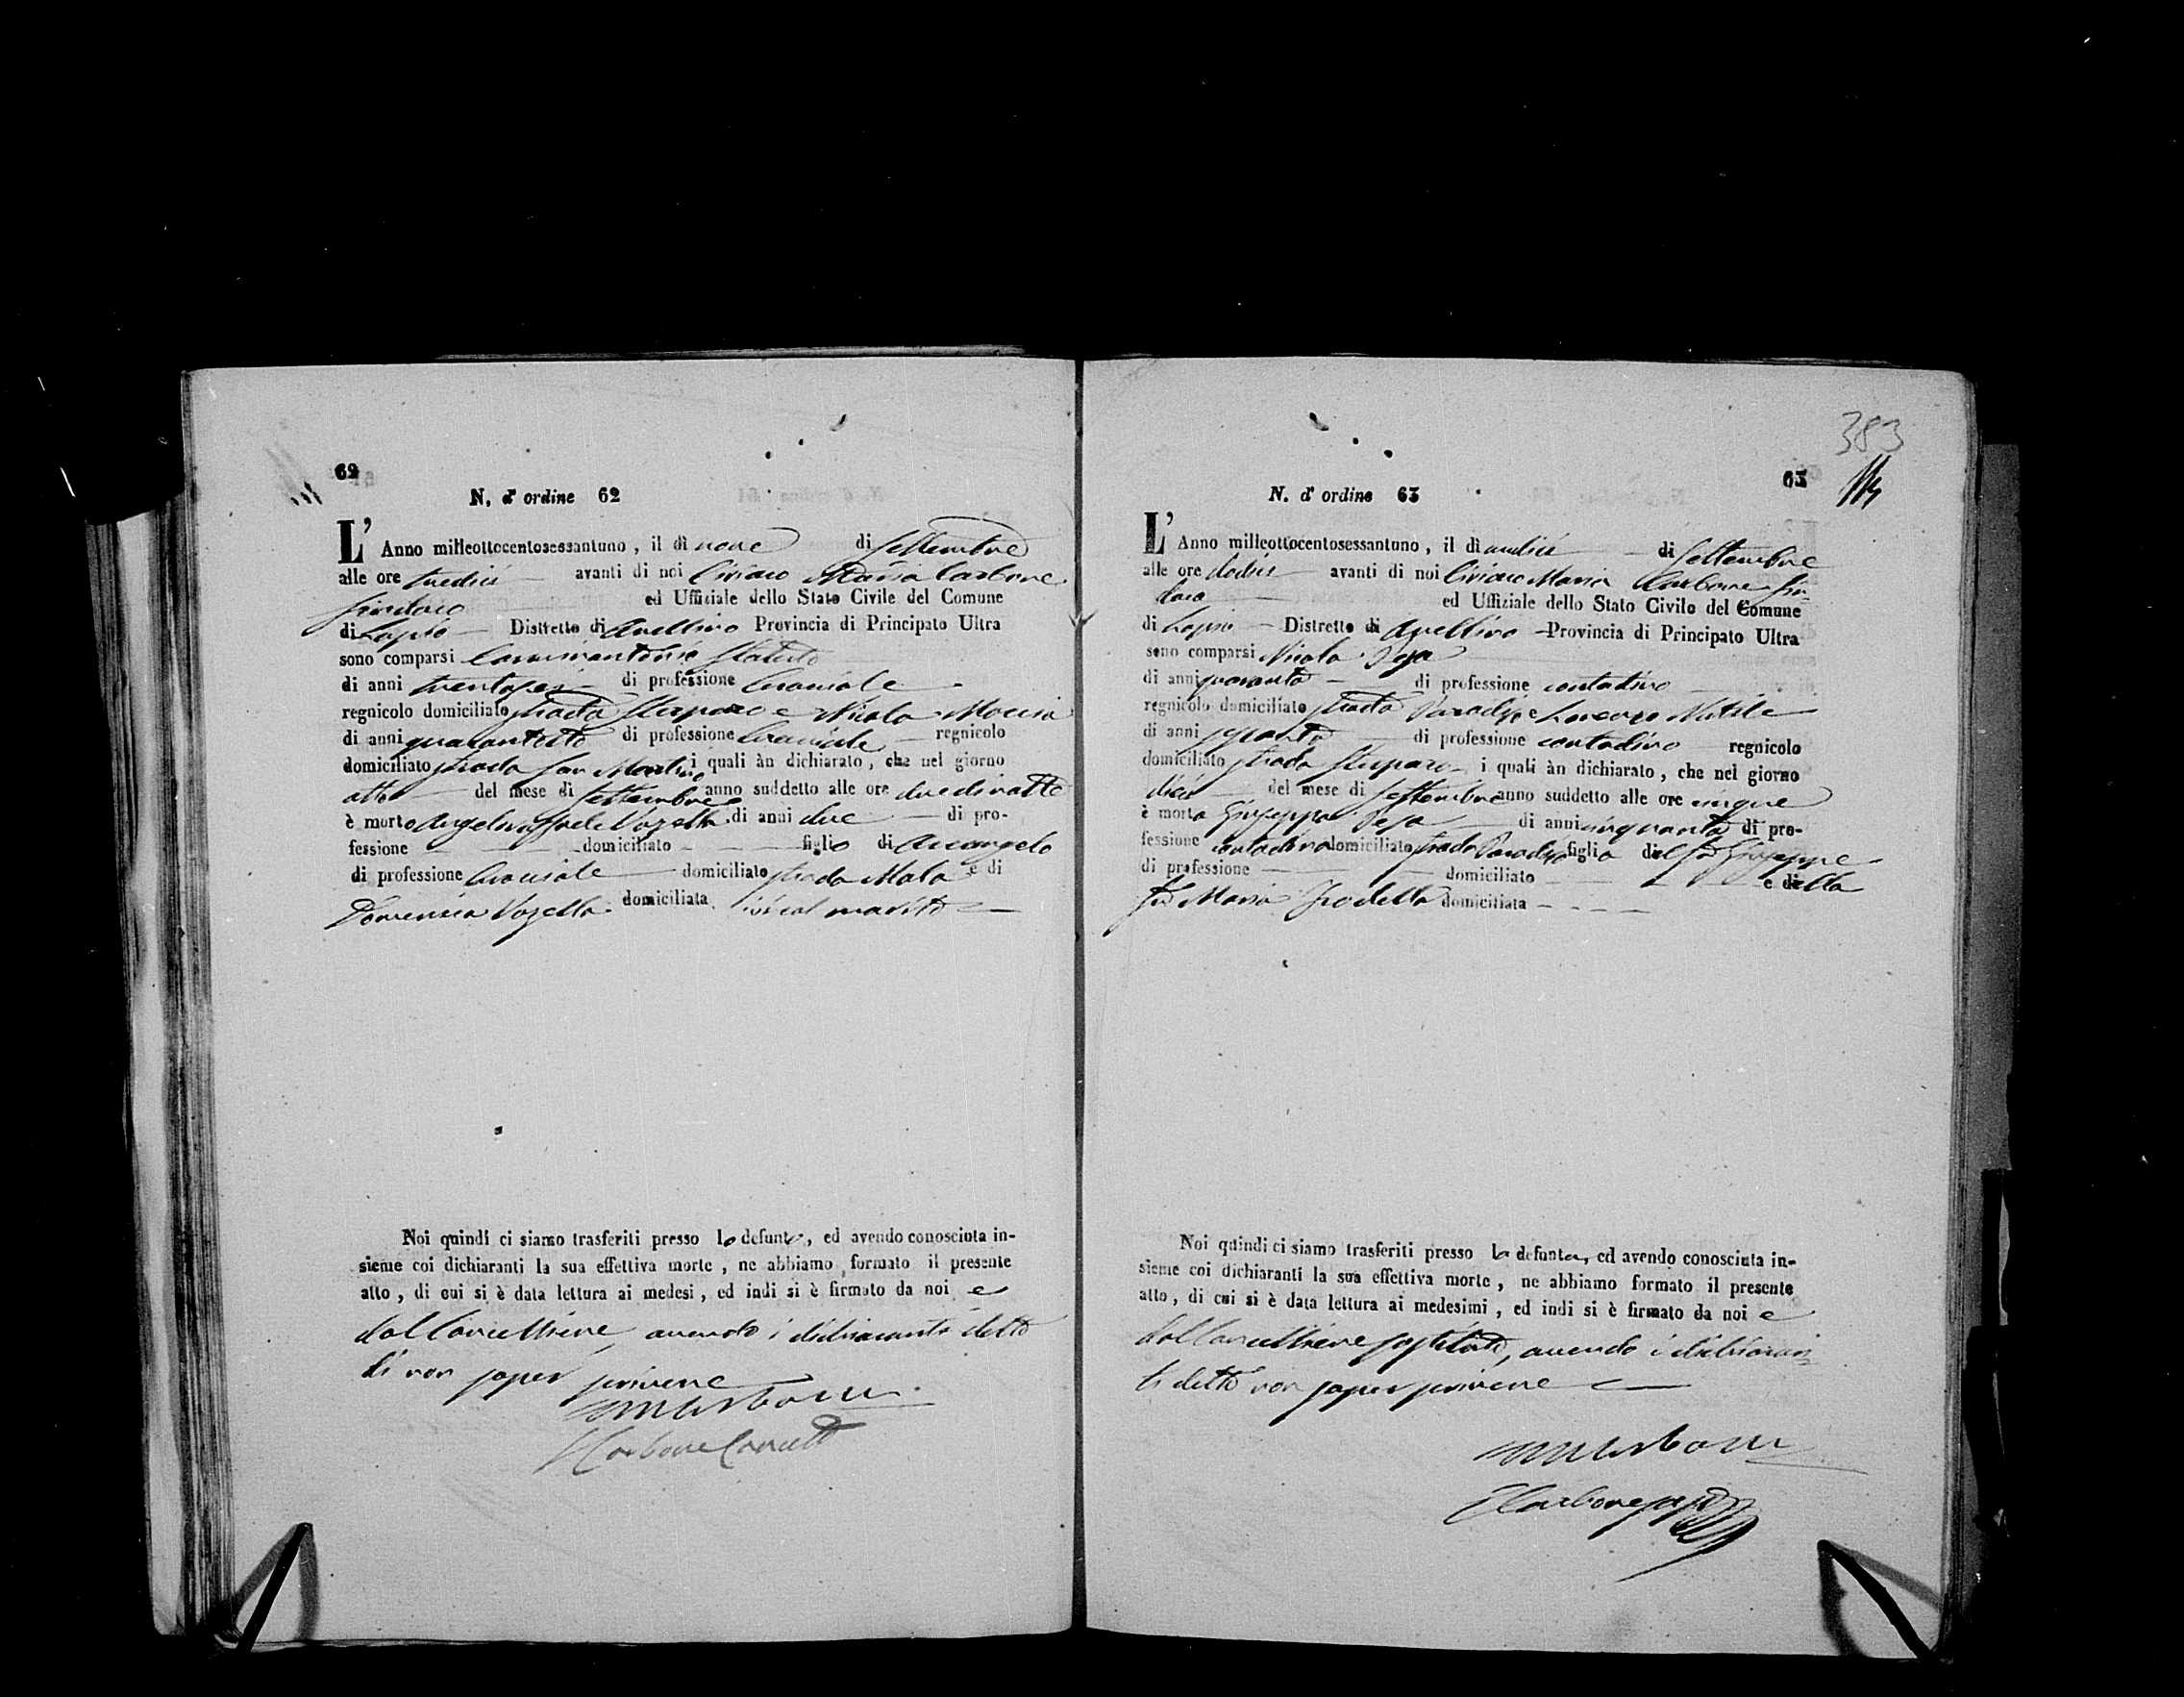 62
N. d' ordine 62
L' Anno milleottocentosessantuno, il dì nove di Settembre
alle ore tredici avanti di noi Ciriaco Maria Carbone
Sindaco ed Uffiziale dello Stato Civile del Comune
di Lapio Distretto di Avellino Provincia di Principato Ultra
sono comparsi
di anni trentasei di professione
regnicolo domiciliato strada e Nicola
di anni quarantotto di professione regnicolo
domiciliato strada San Martino i quali àn dichiarato, che nel giorno
otto del mese di Settembre anno suddetto alle ore
è morto di anni due di pro-
fessione domiciliato figlio di Arcangelo
di professione domiciliato strada Mala e di
Domenica Vozella domiciliata marito
Noi quindi ci siamo trasferiti presso lo defunto, ed avendo conosciuta in-
sieme coi dichiaranti la sua effettiva morte, ne abbiamo formato il presente
atto, di cui si è data lettura ai medesi, ed indi si è firmato da noi e
dal Cancelliere, avendo i dichiaranti detto
di non saper scrivere
Carbone
383
63
N. d' ordine 63
L' Anno milleottocentosessantuno, il dì undici di Settembre
alle ore dodici avanti di noi Ciriaco Maria Carbone Sin-
daco ed Uffiziale dello Stato Civile del Comune
di Lapio Distretto di Avellino Provincia di Principato Ultra
sono comparsi Nicola
di anni quaranta di professione contadino
regnicolo domiciliato strada Paradiso e Lorenzo
di anni di professione contadino regnicolo
domiciliato strada i quali àn dichiarato, che nel giorno
dieci del mese di Settembre anno suddetto alle ore cinque
è morta Giuseppa di anni cinquanta di pro-
fessione contadina domiciliato strada Paradiso figlia del fu Giuseppe
di professione domiciliato e della
fu Maria domiciliata
Noi quindi ci siamo trasferiti presso la defunta, ed avendo conosciuta in-
sieme coi dichiaranti la sua effettiva morte, ne abbiamo formato il presente
atto, di cui si è data lettura ai medesimi, ed indi si è firmato da noi e
dal Cancelliere sostituto, avendo i dichiaran-
ti detto non saper scrivere
Carbone